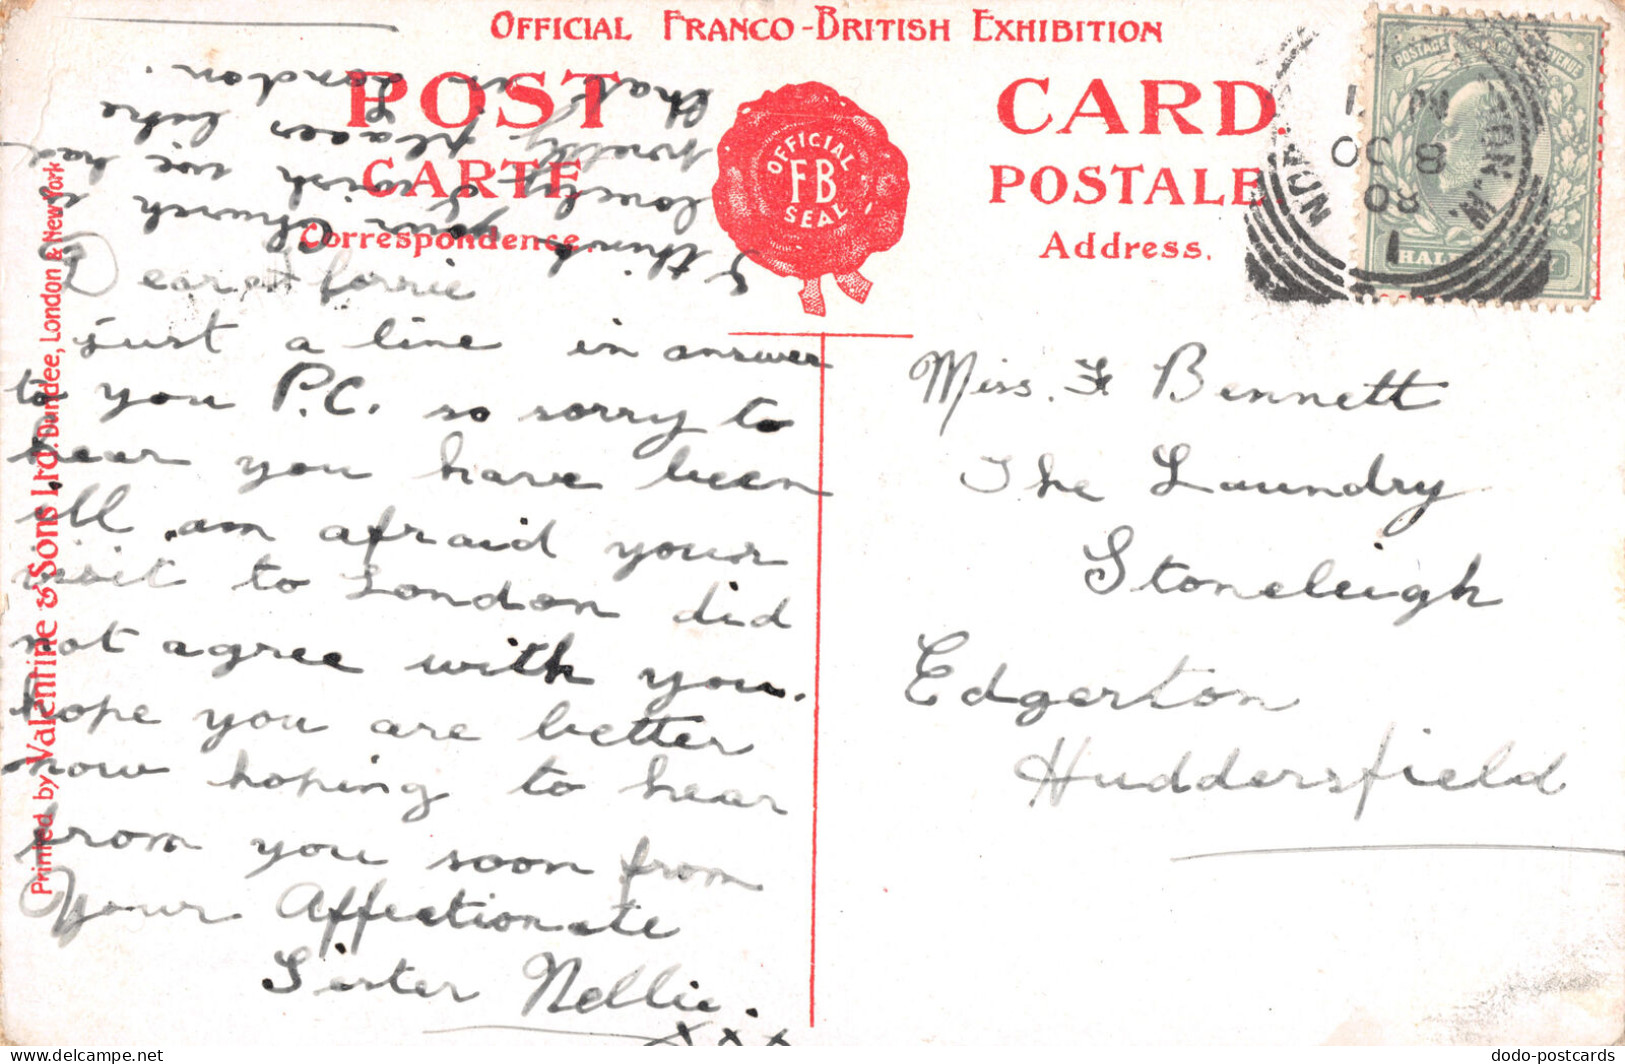 OFFICIAL FRANCO-BRITISH EXHIBITION
POST CARD
CARTE POSTALE
Correspondence. Address.
OFFICIAL
FB
SEAL
Printed by Valentine & Sons Ltd. Dundee, London & New York
POSTAGE REVENUE
HALF
LONDON. W.
N 1
8 OC
08
1
Dearest
just a line in answer
to you P.C. so sorry to
hear you have been
ill am afraid your
visit to London did
not agree with you.
hope you are better
now hoping to hear
from you soon from
Your Affectionate
Sister Nellie.
x x x
I think your Church is
lovely I wish we had
pretty places like
that in London.
Miss. F Bennett
The Laundry
Stoneleigh
Edgerton
Huddersfield
dodo-postcards